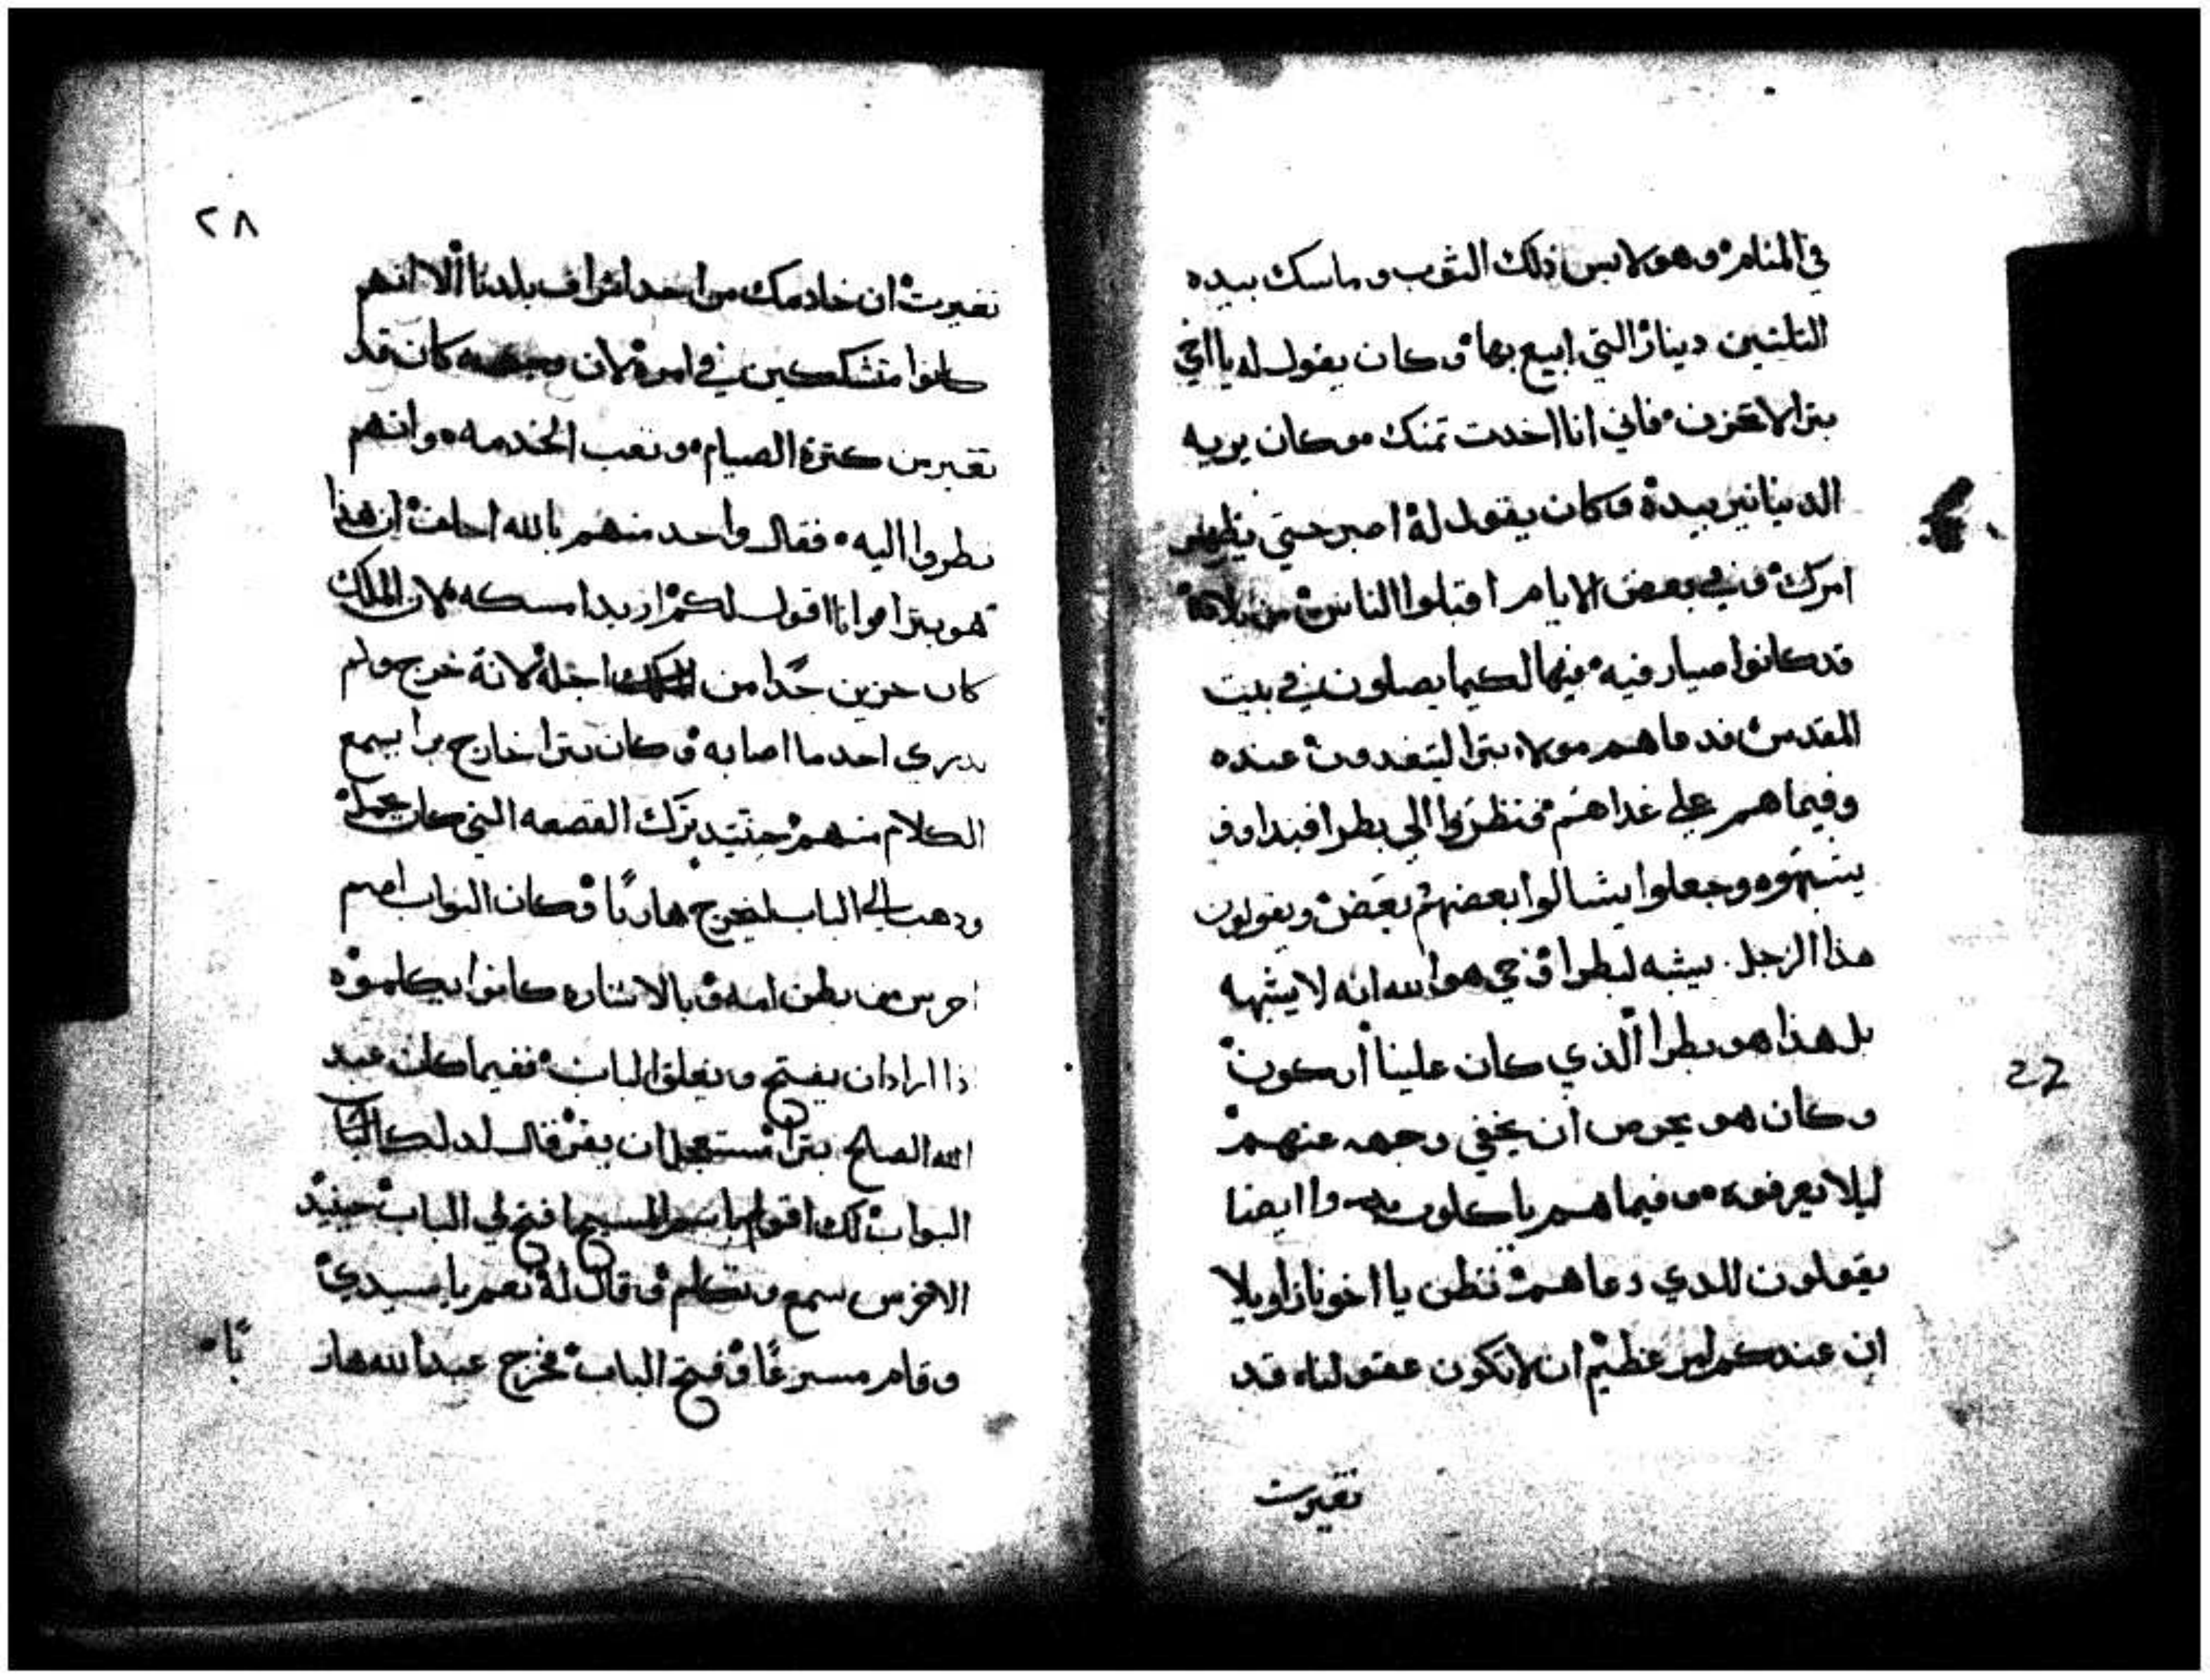 في المنام وهو لابس ذلك الثوب وماسك بيده
الثلثين دينار التي ابيع بها وكان يقول له يا اخي
بترا لا تحزن فاني انا اخدت تمنك وكان يريه
الدنيانير بيدة وكان يقول لة اصبر حتي يظهر
امرك وفي بعض الايام اقبلوا الناس من بلاة
قد كانوا صيارفيه فيها لكيما يصلون في بيت
المقدس فدعاهم مولاء بترا ليتغدون عنده
وفيما هم علي غداهم فنظروا الي بطرا فبداوو
يشبهوه وجعلوا يسالوا بعضهم بعض ويقولون
هذا الرجل يشبه لبطرا وحي هو الله انه لا يشبهه
بل هذا هو بطرا الذي كان علينا اركون
وكان هو يحرص ان يخفي وجهه عنهم
ليلا يعرفوه وفيما هم ياكلون وا ايضا
يقولون للدي دعاهم نظن يا اخونا
ان عندكم امر عظيم ان لا تكون عقولناه قد
تغيرت
٢٨
تغيرت ان خادمك من احد اشراف بلدنا الا انهم
كانوا متشككين في امرة لان وجهه كان قد
تغير من كترة الصيام وتعب الخدمه وانهم
نطروا اليه فقال واحد منهم بالله احلف ان هذا
هو بترا وانا اقول لكم اريد امسكه لان الملك
كان حزين جدا من اجلة لانة خرج ولم
يدري احد ما اصابه وكان بترا خارج برا يسمع
الكلام منهم حينيد ترك القصعه التي كان
ودهب الي الباب ليخرج هاربا وكان البواب اصم
اخرس من بطن امه وبالاشاره كانوا يكلموه
اذا اراد ان يفتح ويغلق الباب ففيما كان عبد
الله الصالح بترا مستعجل ان يفر قال لدلك
البواب لك اقول باسم المسيح افتح لي الباب حينيد
الاخرس سمع وتكلم وقال لة نعم يا سيدي
وقام مسرعا وفتح الباب فخرج عبد الله هار
با